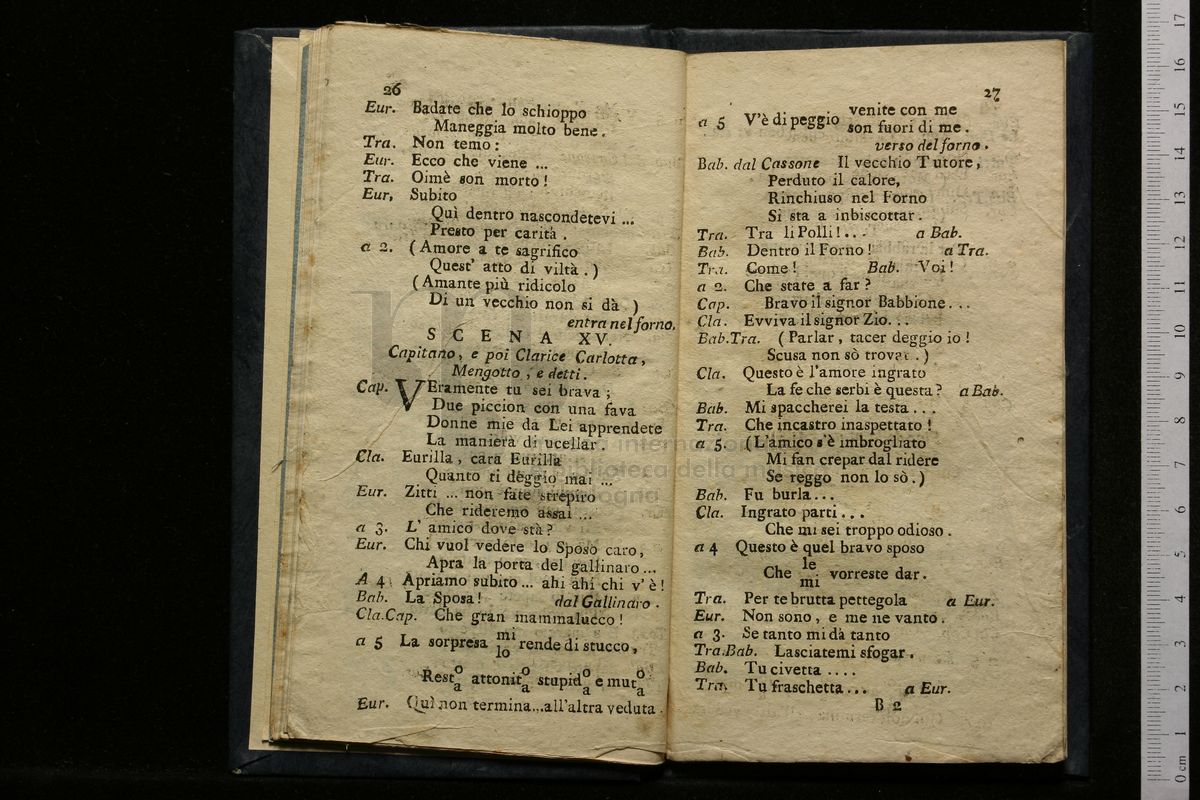 26
Eur. Badate che lo schioppo
Maneggia molto bene.
Tra. Non temo:
Eur. Ecco che viene ...
Tra. Oimè son morto!
Eur, Subito
Quì dentro nascondetevi ...
Presto per carità.
a 2. (Amore a te sagrifico
Quest' atto di viltà.)
(Amante più ridicolo
Di un vecchio non si dà )
entra nel forno.
SCENA XV.
Capitano, e poi Clarice Carlotta,
Mengotto, e detti.
Cap. VEramente tu sei brava;
Due piccion con una fava
Donne mie da Lei apprendete
La maniera di ucellar.
Cla. Eurilla, cara Eurilla
Quanto ti deggio mai ...
Eur. Zitti ... non fate strepiro
Che rideremo assai ...
a 3. L' amico dove stà?
Eur. Chi vuol vedere lo Sposo caro,
Apra la porta del gallinaro ...
A 4 Apriamo subito ... ahi ahi chi v' è!
Bab. La Sposa! dal Gallinaro.
Cla.Cap. Che gran mammalucco!
a 5 La sorpresa mi lo rende di stucco,
Rest o a attonit o a stupid o a e mut o a
Eur. Quì non termina...all'altra veduta.
27
a 5 V'è di peggio venite con me
son fuori di me.
verso del forno.
Bab. dal Cassone Il vecchio Tutore,
Perduto il calore,
Rinchiuso nel Forno
Si sta a inbiscottar.
Tra. Tra li Polli!... a Bab.
Bab. Dentro il Forno! a Tra.
Tra. Come! Bab. Voi!
a 2. Che state a far?
Cap. Bravo il signor Babbione...
Cla. Evviva il signor Zio...
Bab.Tra. (Parlar, tacer deggio io!
Scusa non sò trovar.)
Cla. Questo è l'amore ingrato
La fe che serbi è questa? a Bab.
Bab. Mi spaccherei la testa...
Tra. Che incastro inaspettato!
a 5. (L'amico s'è imbrogliato
Mi fan crepar dal ridere
Se reggo non lo sò.)
Bab. Fu burla...
Cla. Ingrato parti...
Che mi sei troppo odioso.
a 4 Questo è quel bravo sposo
Che le mi vorreste dar.
Tra. Per te brutta pettegola a Eur.
Eur. Non sono, e me ne vanto.
a 3. Se tanto mi dà tanto
Tra.Bab. Lasciatemi sfogar.
Bab. Tu civetta ....
Tra. Tu fraschetta... a Eur.
B 2